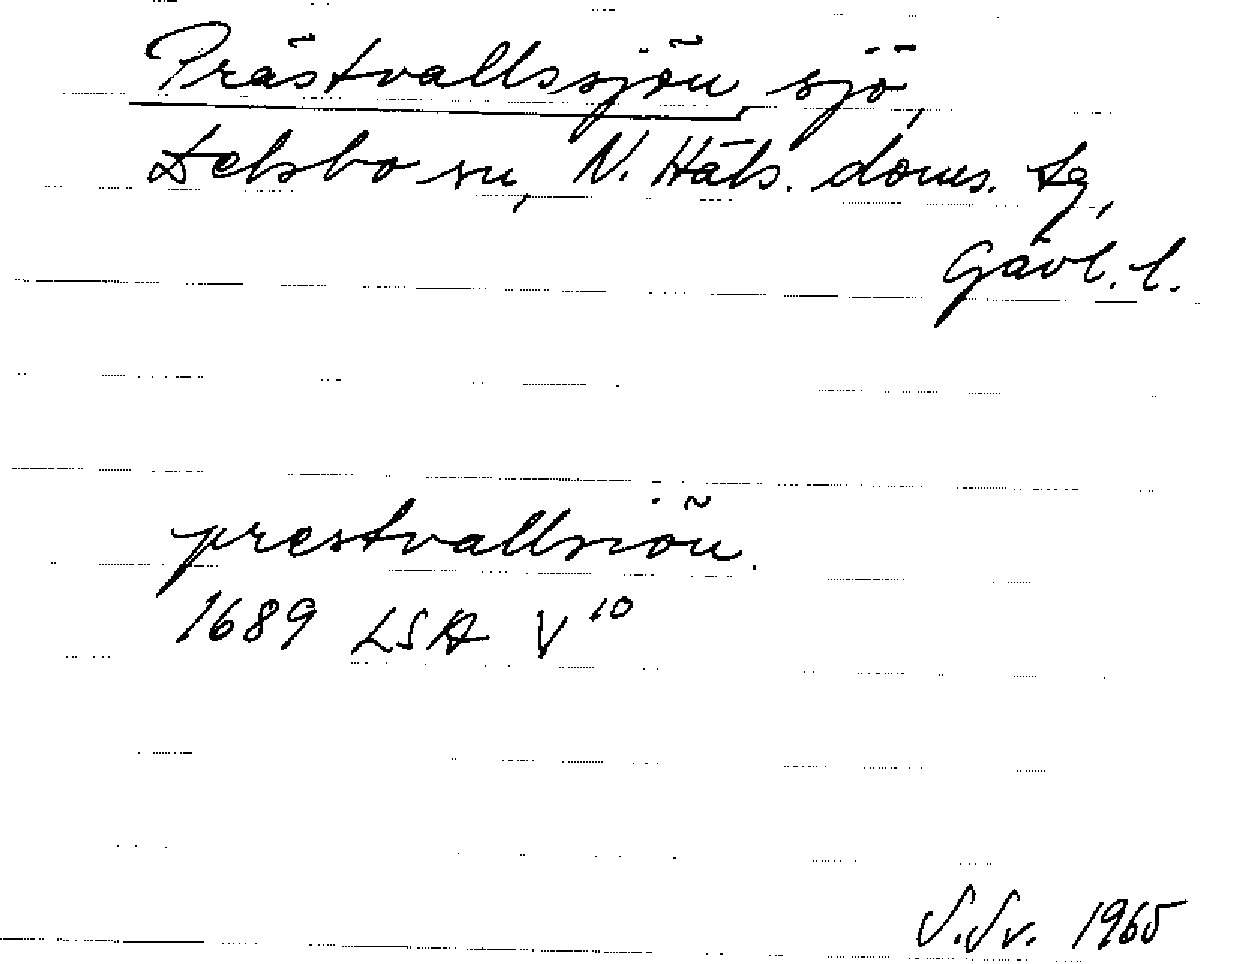 Prästvallssjön, sjö,
Delsbo sn, N. Häls. doms. tg,
Gävl. l.
prestvallsiön.
1689 LSA V¹⁰
S.Sv. 1965